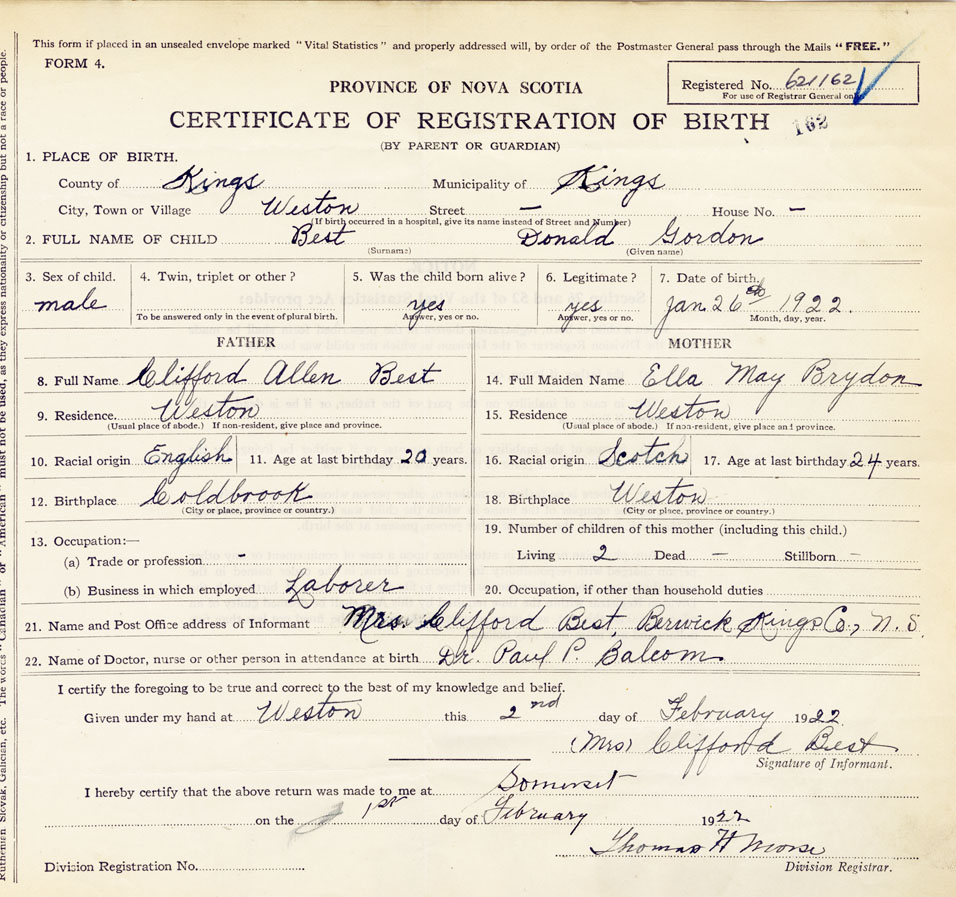 This form if placed in an unsealed envelope marked "Vital Statistics" and properly addressed will, by order of the Postmaster General pass through the Mails "FREE."
FORM 4.
Registered No. 621162
For use of Registrar General only
PROVINCE OF NOVA SCOTIA
CERTIFICATE OF REGISTRATION OF BIRTH 162
(BY PARENT OR GUARDIAN)
1. PLACE OF BIRTH.
County of Kings Municipality of Kings
City, Town or Village Weston Street — House No. —
(If birth occurred in a hospital, give its name instead of Street and Number)
2. FULL NAME OF CHILD Best Donald Gordon
(Surname) (Given name)
3. Sex of child. 4. Twin, triplet or other? 5. Was the child born alive? 6. Legitimate? 7. Date of birth.
male yes yes Jan 26th 1922.
To be answered only in the event of plural birth. Answer, yes or no. Answer, yes or no. Month, day, year.
FATHER MOTHER
8. Full Name Clifford Allen Best 14. Full Maiden Name Ella May Brydon
9. Residence. Weston 15. Residence Weston
(Usual place of abode.) If non-resident, give place and province. (Usual place of abode.) If non-resident, give place and province.
10. Racial origin English 11. Age at last birthday 20 years. 16. Racial origin Scotch 17. Age at last birthday 24 years.
12. Birthplace Coldbrook 18. Birthplace Weston
(City or place, province or country.) (City or place, province or country.)
13. Occupation:— 19. Number of children of this mother (including this child.)
(a) Trade or profession - Living 2 Dead — Stillborn —
(b) Business in which employed Laborer 20. Occupation, if other than household duties
21. Name and Post Office address of Informant Mrs. Clifford Best, Berwick Kings Co., N.S.
22. Name of Doctor, nurse or other person in attendance at birth Dr. Paul P. Balcom.
I certify the foregoing to be true and correct to the best of my knowledge and belief.
Given under my hand at Weston this 2nd day of February 1922
(Mrs) Clifford Best
Signature of Informant.
I hereby certify that the above return was made to me at Somerset
on the 1st day of February 1922
Thomas H Morse
Division Registration No. Division Registrar.
Ruthenian Slovak, Galician, etc. The words "Canadian" or "American" must not be used, as they express nationality or citizenship but not a race or people.